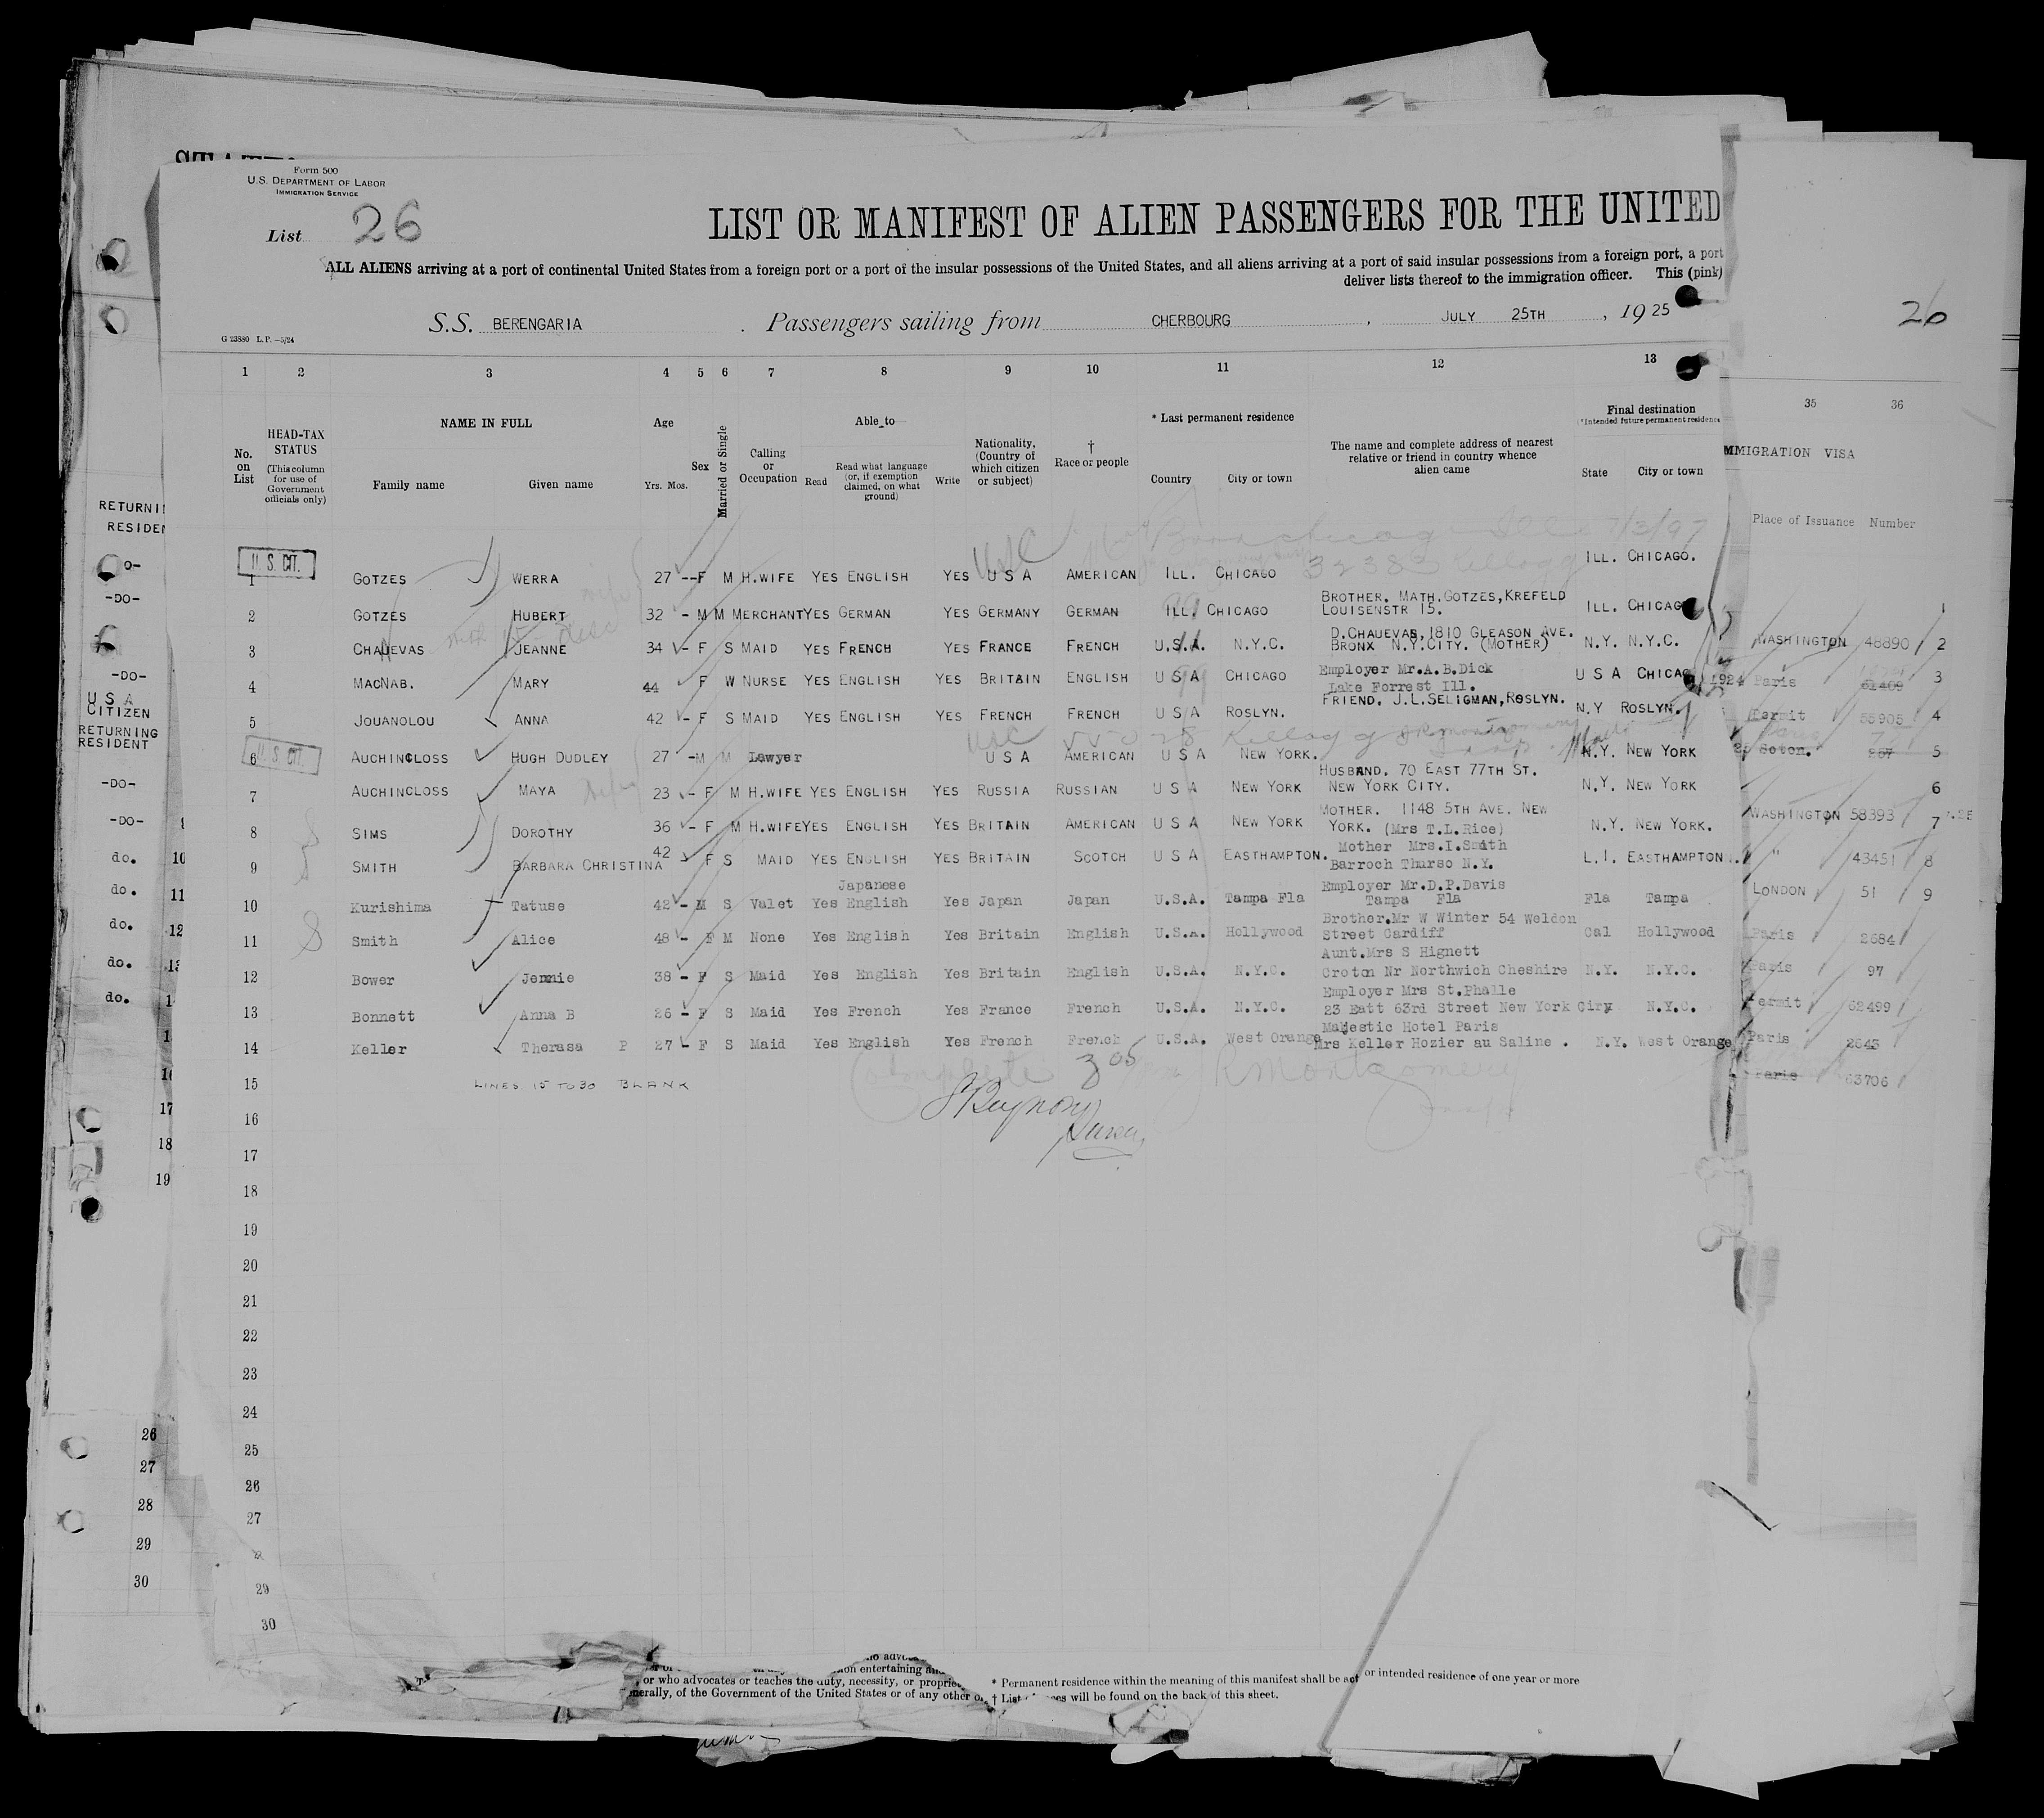 Form 500
U.S. DEPARTMENT OF LABOR
IMMIGRATION SERVICE
List 26
LIST OR MANIFEST OF ALIEN PASSENGERS FOR THE UNITED
ALL ALIENS arriving at a port of continental United States from a foreign port or a port of the insular possessions of the United States, and all aliens arriving at a port of said insular possessions from a foreign port, a port
deliver lists thereof to the immigration officer. This (pink)
S.S. BERENGARIA . Passengers sailing from CHERBOURG , JULY 25TH , 1925
26
G 23880 L.P.—5/24
1 2 3 4 5 6 7 8 9 10 11 12 13 35 36
No. on List
HEAD-TAX STATUS
(This column for use of Government officials only)
NAME IN FULL
Family name Given name
Age
Yrs. Mos.
Sex
Married or Single
Calling or Occupation
Able to
Read
Read what language (or, if exemption claimed, on what ground)
Write
Nationality, (Country of which citizen or subject)
† Race or people
* Last permanent residence
Country City or town
The name and complete address of nearest relative or friend in country whence alien came
Final destination
*Intended future permanent residence
State City or town
MMIGRATION VISA
Place of Issuance Number
U.S. CIT.
1 GOTZES WERRA 27 -- F M H.WIFE YES ENGLISH YES U S A AMERICAN ILL. CHICAGO ILL. CHICAGO.
BROTHER. MATH.GOTZES,KREFELD
2 GOTZES HUBERT 32 - M M MERCHANT YES GERMAN YES GERMANY GERMAN ILL. CHICAGO LOUISENSTR 15. ILL. CHICAG
D.CHAUEVAS,1810 GLEASON AVE.
3 CHAUEVAS JEANNE 34 - F S MAID YES FRENCH YES FRANCE FRENCH U.S.A. N.Y.C. BRONX N.Y.CITY. (MOTHER) N.Y. N.Y.C.
Employer Mr.A.B.Dick
4 MACNAB. MARY 44 F W NURSE YES ENGLISH YES BRITAIN ENGLISH U S A CHICAGO Lake Forrest Ill. U S A CHICAG
FRIEND. J.L.SELIGMAN,ROSLYN.
5 JOUANOLOU ANNA 42 - F S MAID YES ENGLISH YES FRENCH FRENCH U S A ROSLYN. N.Y ROSLYN.
U.S. CIT.
6 AUCHINCLOSS HUGH DUDLEY 27 - M M Lawyer U S A AMERICAN U S A NEW YORK. N.Y. NEW YORK
HUSBAND. 70 EAST 77TH ST.
7 AUCHINCLOSS MAYA 23 - F M H.WIFE YES ENGLISH YES RUSSIA RUSSIAN U S A NEW YORK NEW YORK CITY. N.Y. NEW YORK
MOTHER. 1148 5TH AVE. NEW
8 SIMS DOROTHY 36 - F M H.WIFE YES ENGLISH YES BRITAIN AMERICAN U S A NEW YORK YORK. (Mrs T.L.Rice) N.Y. NEW YORK.
Mother Mrs.I.Smith
9 SMITH BARBARA CHRISTINA 42 F S MAID YES ENGLISH YES BRITAIN SCOTCH U S A EASTHAMPTON. Barroch Thurso N.Y. L.I. EASTHAMPTON..
Japanese Employer Mr.D.P.Davis
10 Kurishima Tatuse 42 - M S Valet Yes English Yes Japan Japan U.S.A. Tampa Fla Tampa Fla Fla Tampa
Brother.Mr W Winter 54 Weldon
11 Smith Alice 48 - F M None Yes English Yes Britain English U.S.A. Hollywood Street Cardiff Cal Hollywood
Aunt.Mrs S Hignett
12 Bower Jennie 38 - F S Maid Yes English Yes Britain English U.S.A. N.Y.C. Croton Nr Northwich Cheshire N.Y. N.Y.C.
Employer Mrs St.Phalle
13 Bonnett Anna B 26 - F S Maid Yes French Yes France French U.S.A. N.Y.C. 23 Eatt 63rd Street New York City N.Y.C.
Majestic Hotel Paris
14 Keller Therasa P 27 - F S Maid Yes English Yes French French U.S.A. West Orange Mrs Keller Hozier au Saline . N.Y. West Orange
15 LINES 15 TO 30 BLANK
Complete 305 R Montgomery
16
17
18
19
20
21
22
23
24
25
26
27
29
30
1
WASHINGTON 48890 2
1924 Paris 61409 3
Permit 55905 4
Soton. 267 5
6
WASHINGTON 58393 7
" 43451 8
LONDON 51 9
Paris 2684
Paris 97
Permit 62499
Paris 2643
Paris 63706
RESIDEN
-DO-
-DO-
U S A
CITIZEN
RETURNING
RESIDENT
-DO-
-DO-
do. 10
do. 11
do. 12
do.
do.
17
18
19
26
27
28
29
30
or who advocates or teaches the duty, necessity, or
of the Government of the United States or of any other
* Permanent residence within the meaning of this manifest shall be act or intended residence of one year or more
† List will be found on the back of this sheet.